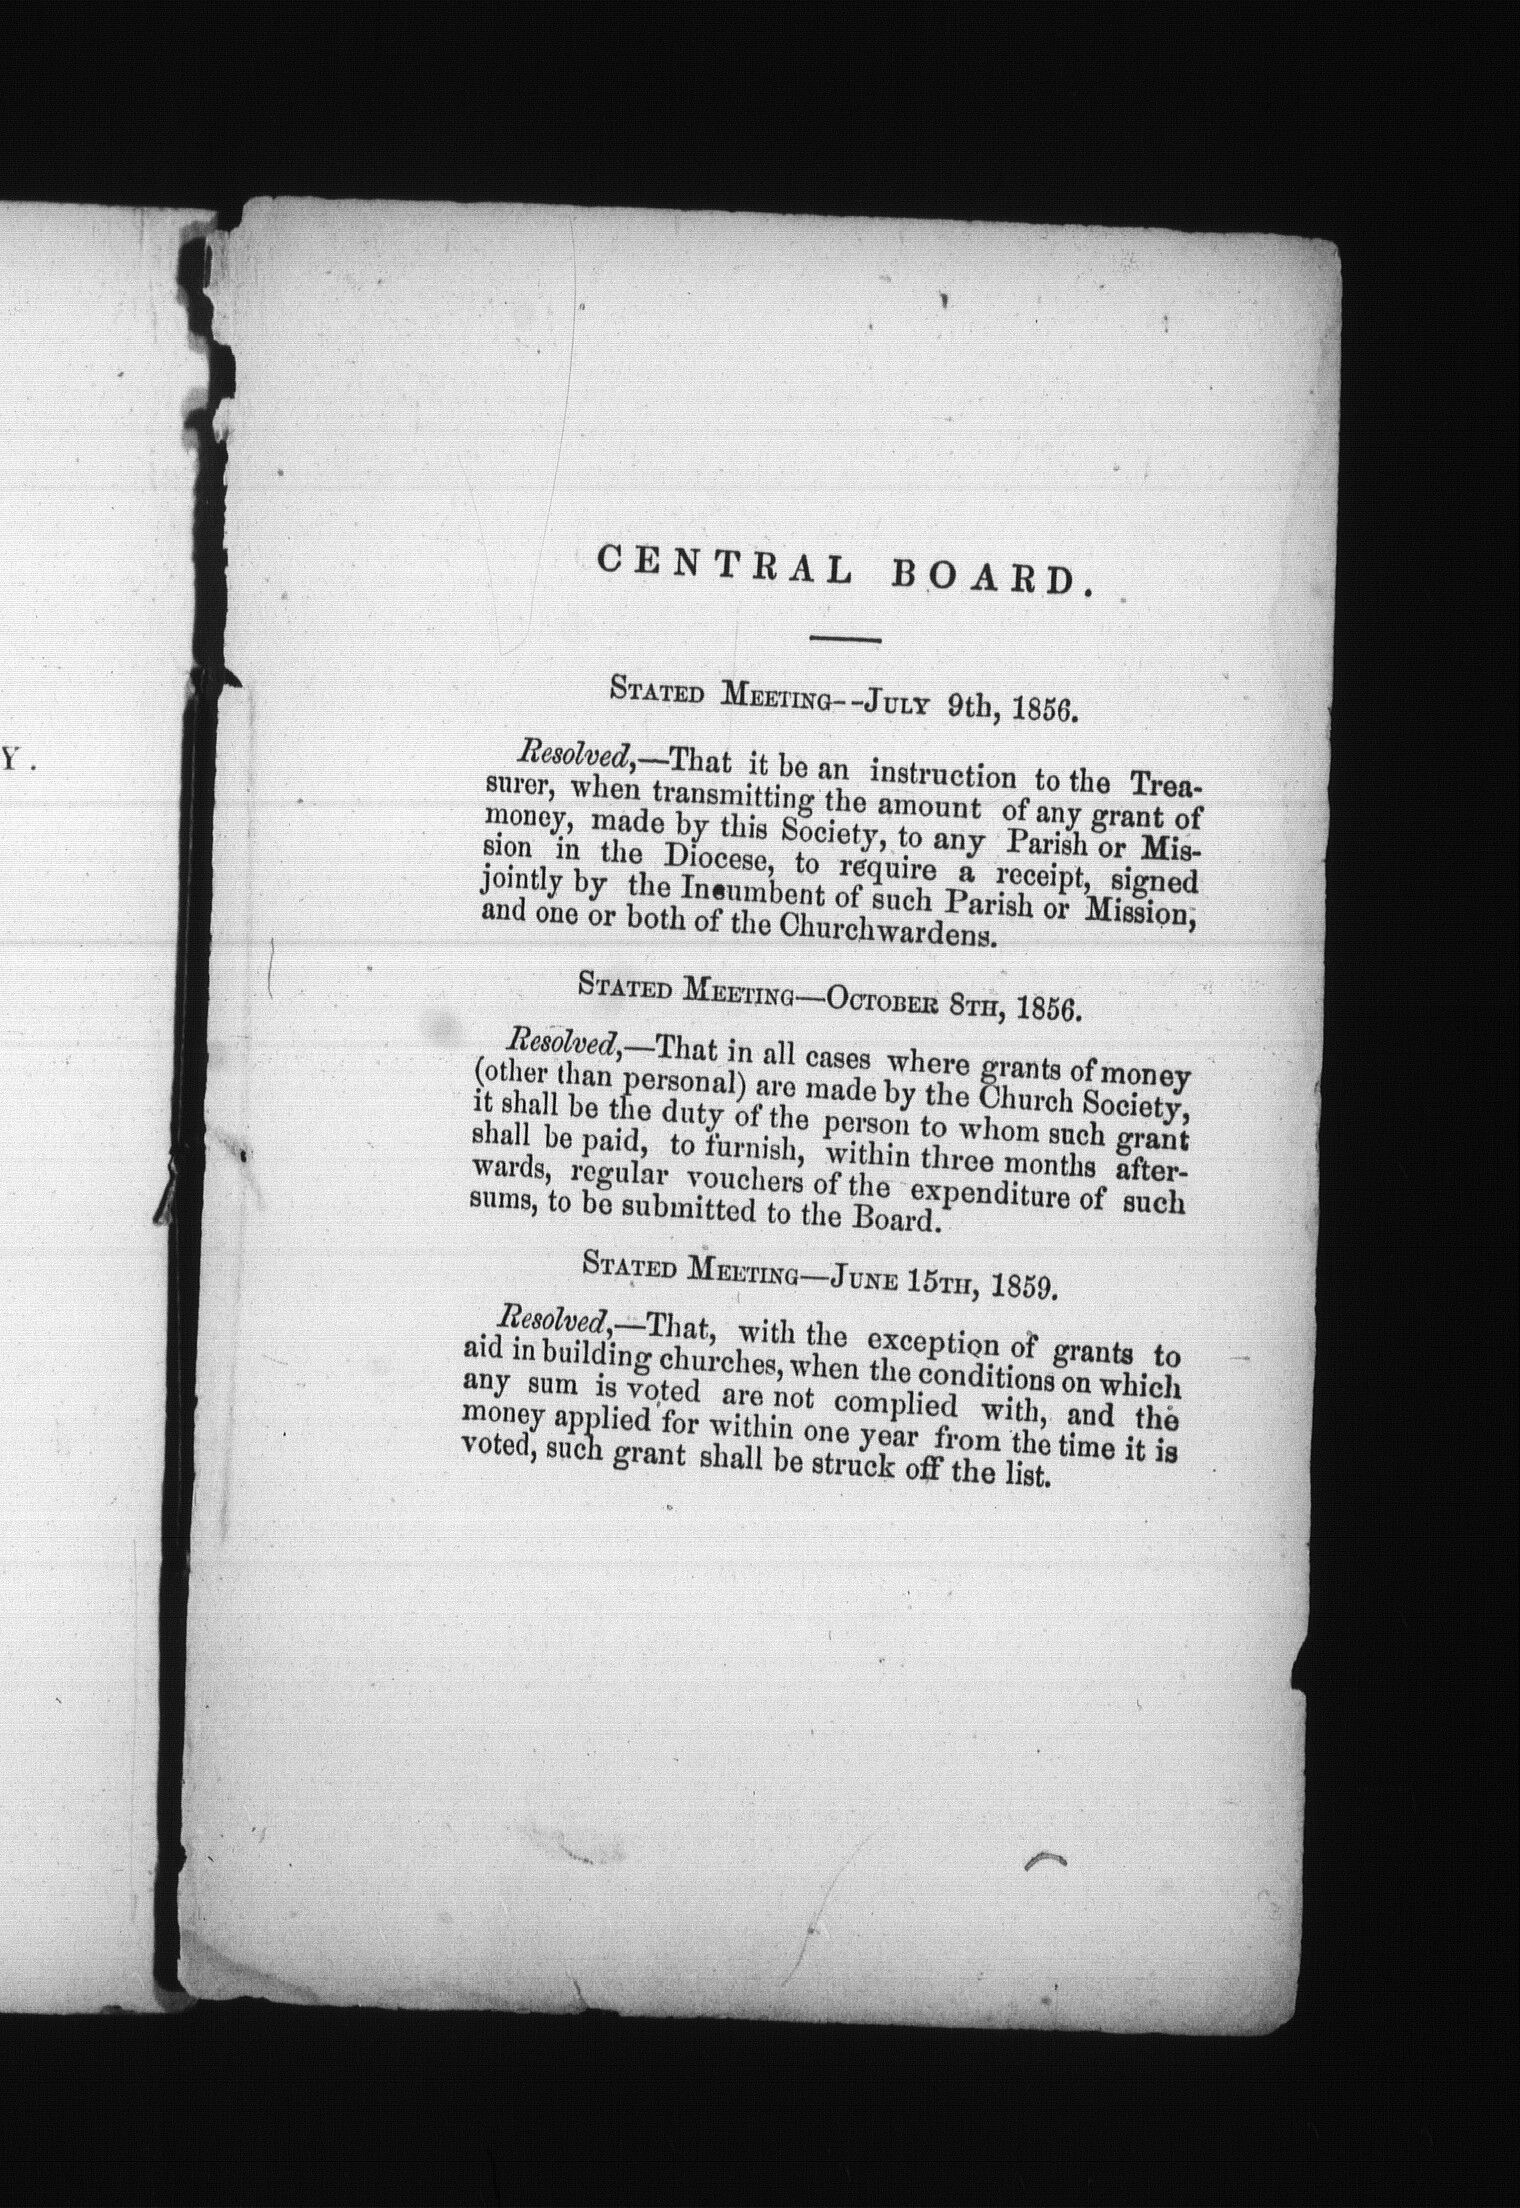 Y.
CENTRAL BOARD.
STATED MEETING--JULY 9th, 1856.
Resolved,—That it be an instruction to the Trea-
surer, when transmitting the amount of any grant of
money, made by this Society, to any Parish or Mis-
sion in the Diocese, to require a receipt, signed
jointly by the Incumbent of such Parish or Mission,
and one or both of the Churchwardens.
STATED MEETING—OCTOBER 8TH, 1856.
Resolved,—That in all cases where grants of money
(other than personal) are made by the Church Society,
it shall be the duty of the person to whom such grant
shall be paid, to furnish, within three months after-
wards, regular vouchers of the expenditure of such
sums, to be submitted to the Board.
STATED MEETING—JUNE 15TH, 1859.
Resolved,—That, with the exception of grants to
aid in building churches, when the conditions on which
any sum is voted are not complied with, and the
money applied for within one year from the time it is
voted, such grant shall be struck off the list.